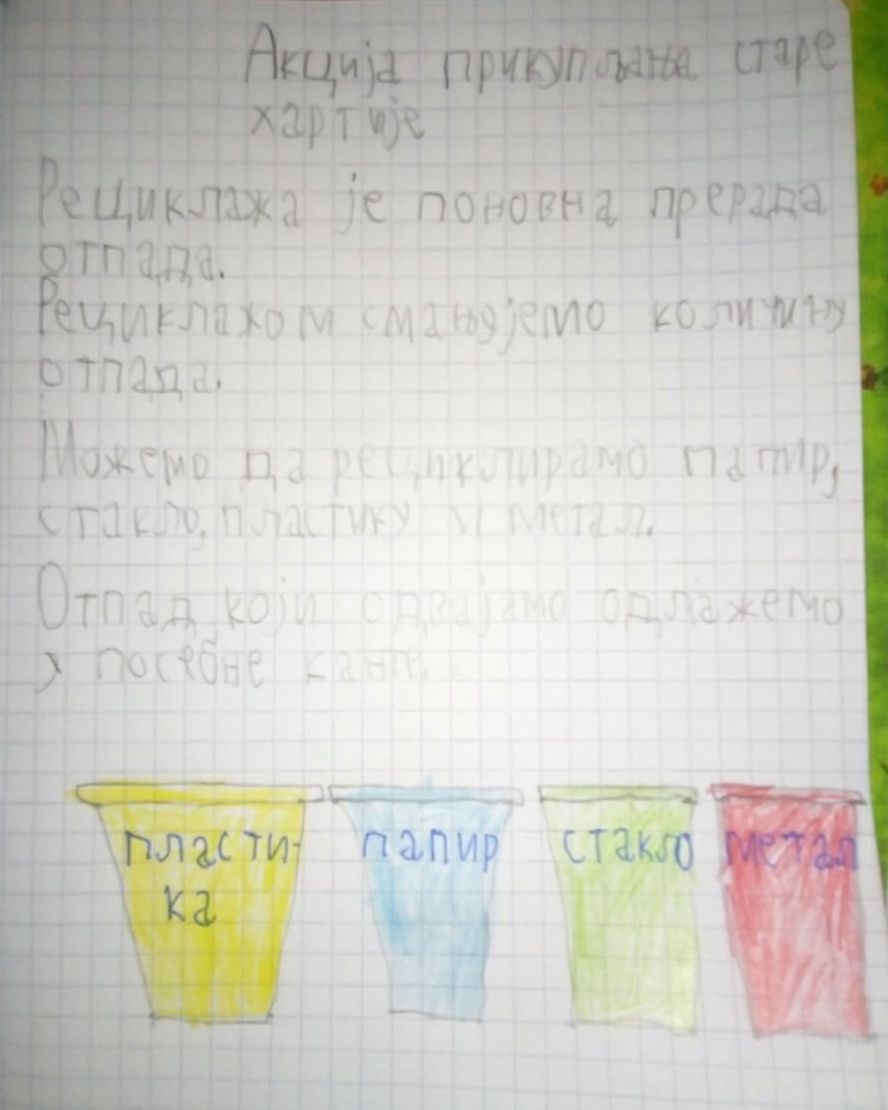 Акција прикупљања старе
хартије
Рециклажа је поновна прерада
отпада.
Рециклажом смањујемо количину
отпада.
Можемо да рециклирамо папир,
стакло, пластику и метал.
Отпад који одвајамо одлажемо
у посебне канте.
пласти-
ка
папир
стакло
метал